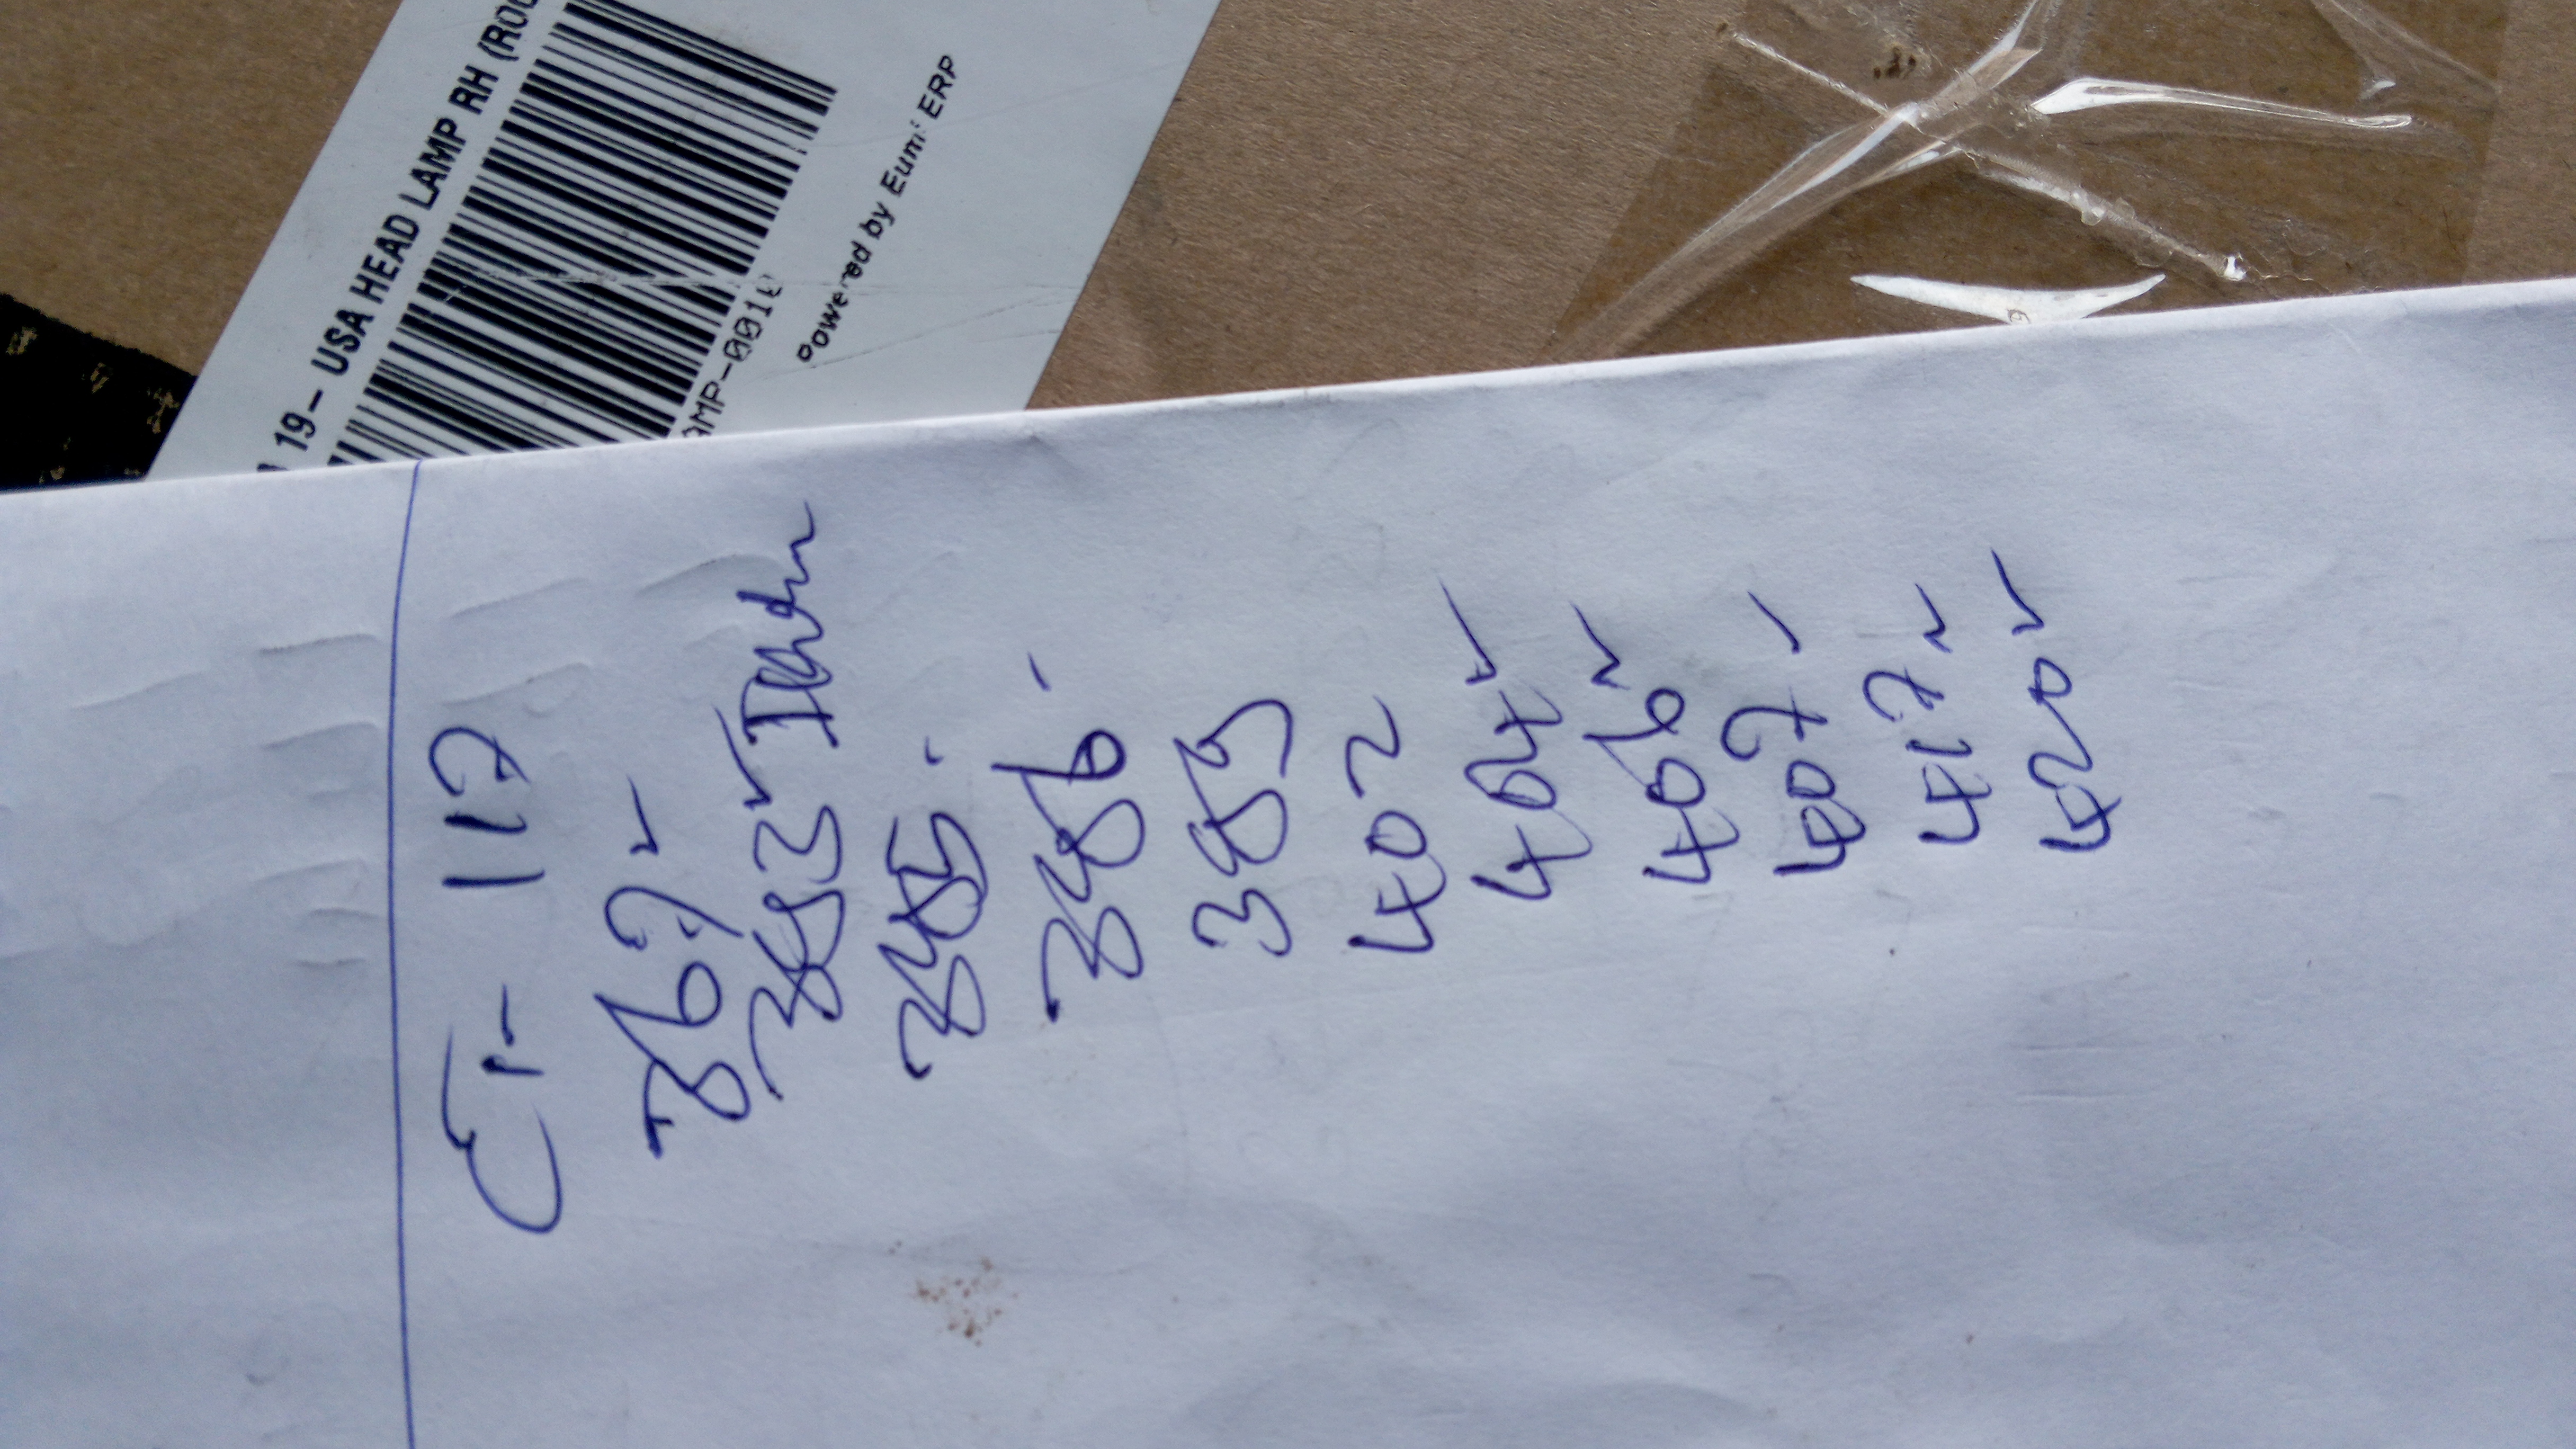 19- USA HEAD LAMP RH (ROO
AMP-0018
Powered by Eumi ERP
En- 117
367 ✓
383 ✓
385 -
386 -
389
402
404 ✓
406 ✓
407 ✓
417 ✓
420 ✓